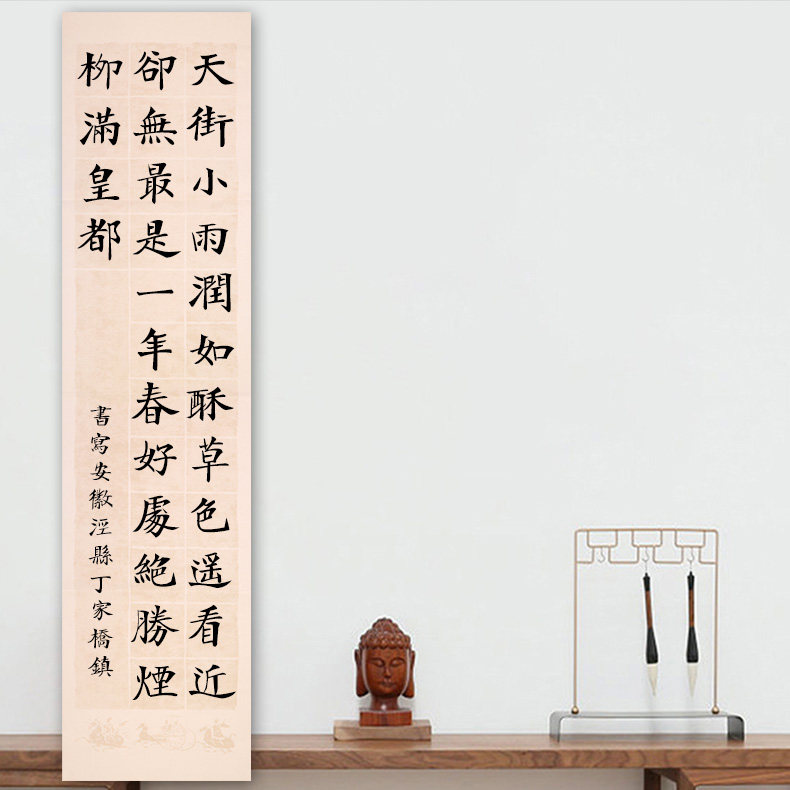 天街小雨潤如酥草色遥看近
卻無最是一年春好處絕勝煙
柳滿皇都
書寫安徽涇縣丁家橋鎮